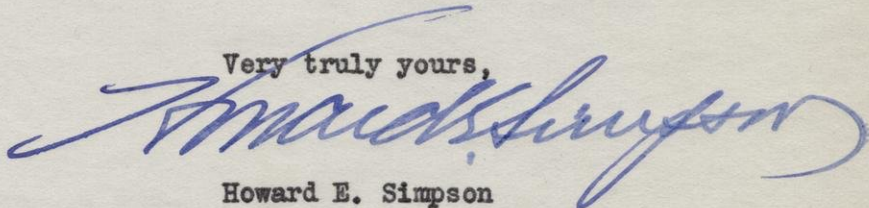 Very truly yours,
Howard E. Simpson
Howard E. Simpson